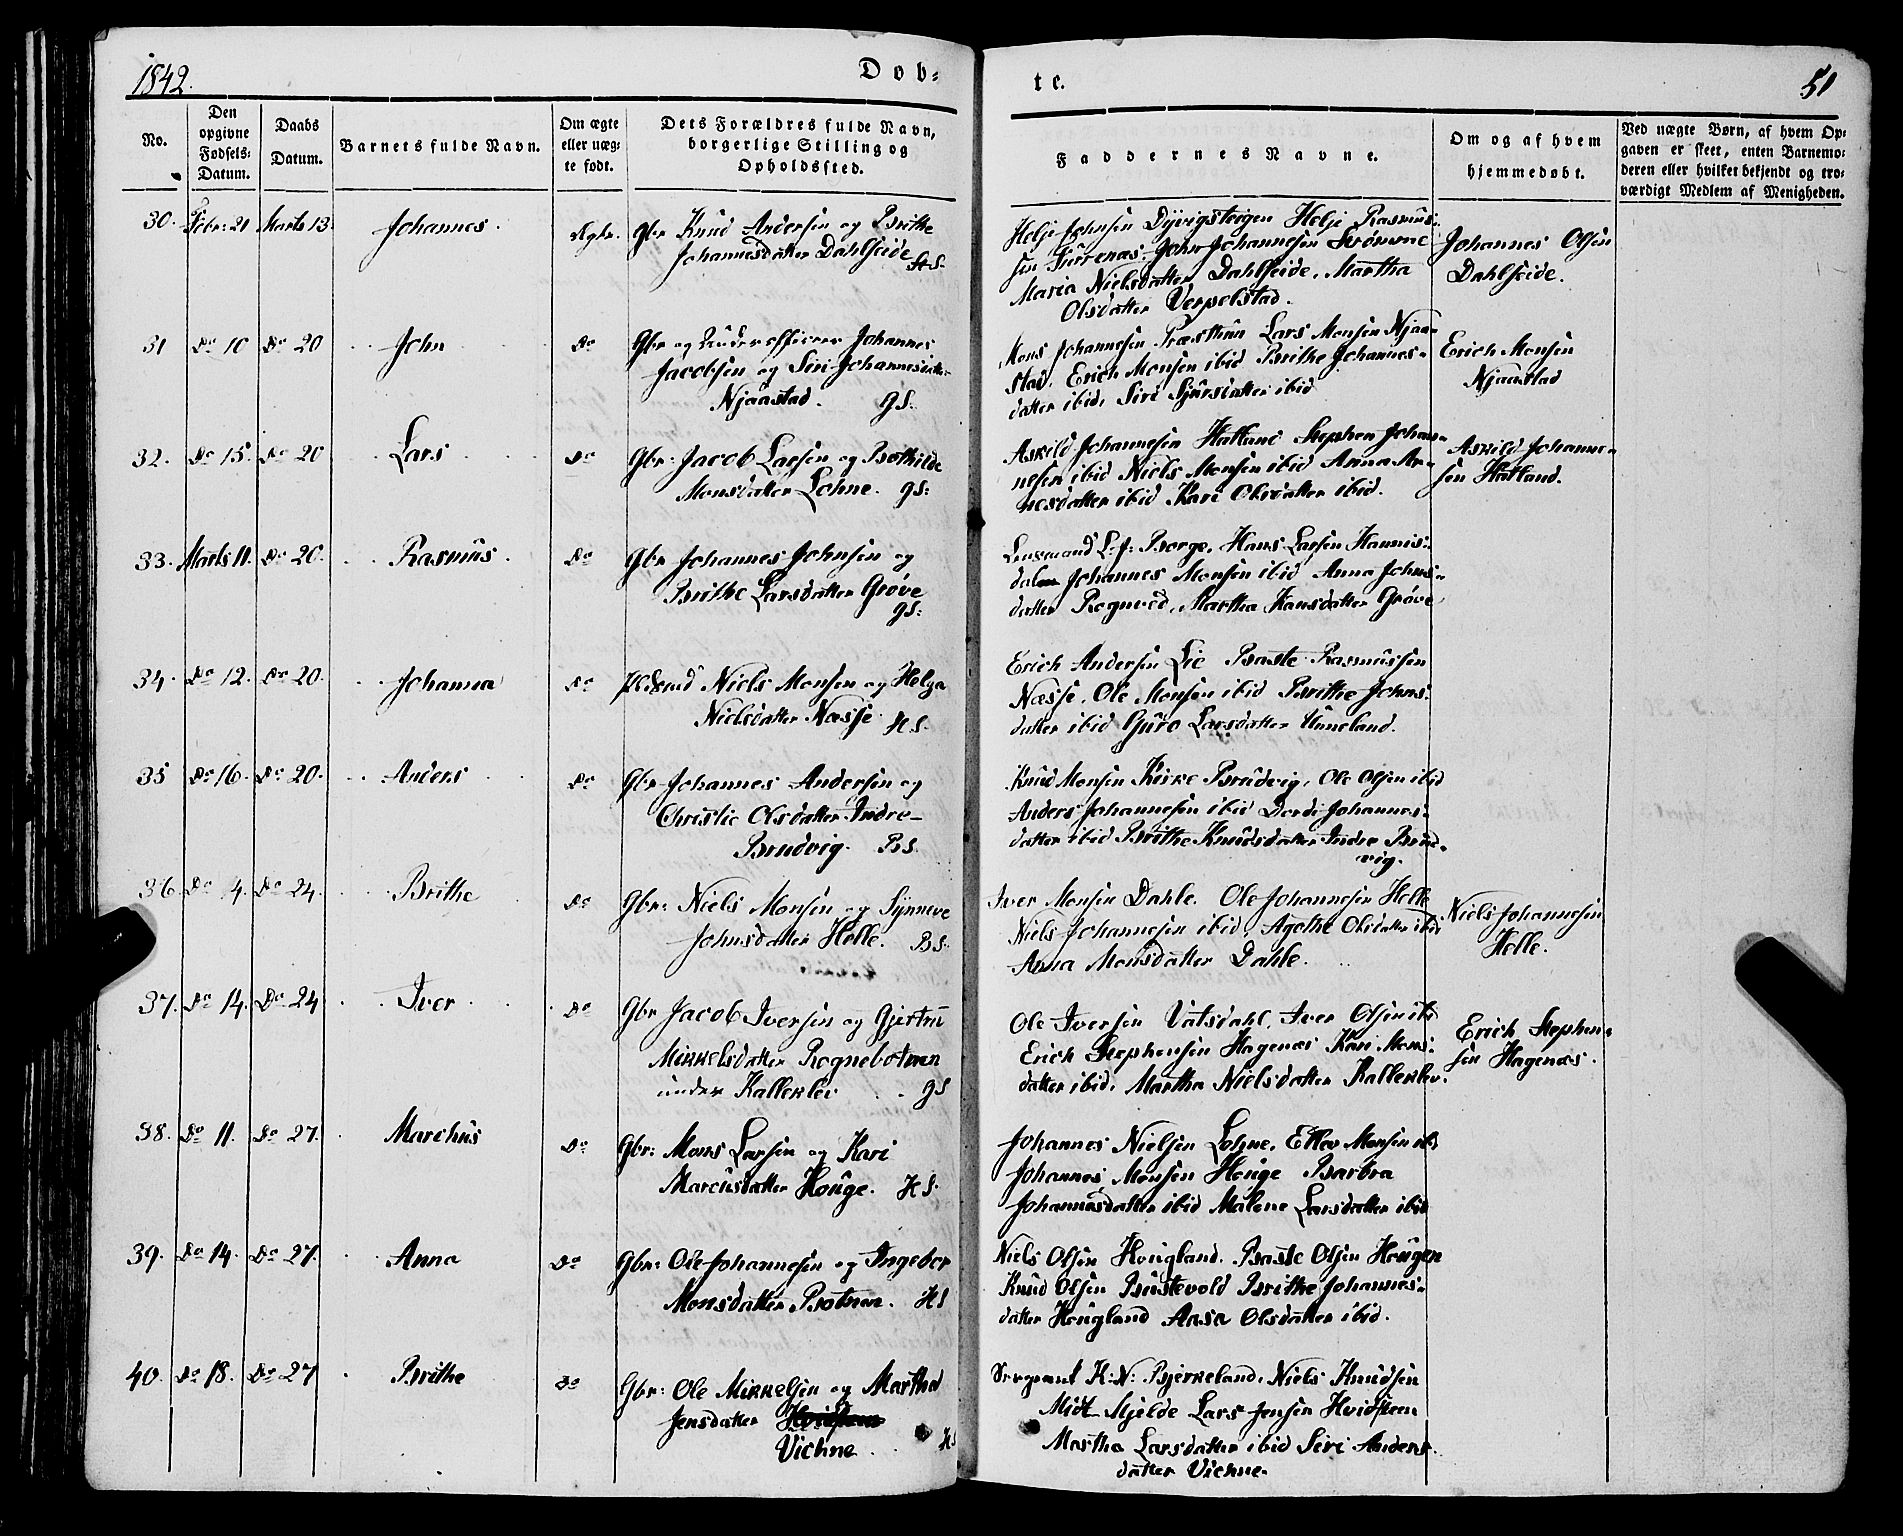 1842.
Døb=
te.
51
No.
Den
opgivne
Fødsels-
Datum.
Daabs
Datum.
Barnets fulde Navn.
Om ægte
eller uæg-
te født.
Dets Forældres fulde Navn,
borgerlige Stilling og
Opholdssted.
Faddernes Navne.
Om og af hvem
hjemmedøbt.
Ved uægte Børn, af hvem Op-
gaven er skeet, enten Barnemo-
deren eller hvilket bekjendt og tro-
værdigt Medlem af Menigheden.
30. Febr: 21 Marts 13. Johannes. Ægte. Gbr Knud Andersen og Brithe
Johannesdatter Dahlseide
Helje Johnsen Helje Rasmus-
sen John Johannesen
Maria Nielsdatter Dahlseide, Martha
Olsdatter Verpelstad.
Johannes Olsen
Dahlseide.
31 Do 10 Do 20 John Do Gbr og Underofficier Johannes
Jacobsen og Siri Johannesdatter
Njaastad. GS.
Mons Johannesen Præsthun Lars Monsen Njaa-
stad, Erich Monsen ibid Brithe Johannes-
datter ibid, Siri Sjursdatter ibid
Erich Monsen
Njaastad
32. Do 15. Do 20 Lars Do Gbr. Jacob Larsen og Bothilde
Monsdatter Lohne. GS:
Askild Johannesen Hatland Stephen Johan-
nesen ibid Niels Monsen ibid Anna Ar-
nesdatter ibid Kari Olsdatter ibid.
Askild Johanne-
sen Hatland.
33. Marts 11. Do 20. Rasmus. Do Gbr Johannes Johnsen og
Brithe Larsdatter Grøve
GS:
Lensmand L: J: Borge, Hans Larsen Hannis-
dalen Johannes Monsen ibid Anna Johns-
datter Rognved, Martha Hansdatter Grøve
34. Do 12. Do 20. Johanna Do Niels Monsen og Helga
Nielsdatter Næsse HS.
Erich Andersen Lie Baste Rasmussen
Næsse, Ole Monsen ibid Brithe Johns-
datter ibid Guro Larsdatter Unneland.
35 Do 16. Do 20. Anders Do Gbr Johannes Andersen og
Christie Olsdatter Indre-
Brudvig. BS.
Knud Monsen Kirke Brudvig, Ole Olsen ibid
Anders Johannesen ibid Dorde Johannes-
datter ibid Brithe Knudsdatter Indre Brud-
vig.
36. Do 4. Do 24. Brithe Do Gbr: Niels Monsen og Synneve
Johnsdatter Helle. BS.
Iver Monsen Dahle. Ole Johannesen Helle
Niels Johannesen ibid, Agathe Olsdatter ibid
Anna Monsdatter Dahle.
Niels Johannesen
Helle.
37. Do 14. Do 24 Iver Do Gbr Jacob Iversen og Gjertru
Mikkelsdatter Rognebotnen
under Kalleklev GS
Ole Iversen Vatsdahl, Iver Olsen ibid
Erich Stephensen Hagenæs Kari Mons-
datter ibid, Martha Nielsdatter Kalleklev.
Erich Stephen-
sen Hagenæs.
38. Do 11. Do 27. Marchus Do Gbr: Mons Larsen og Kari
Marcusdatter Houge. HS.
Johannes Nielsen Lohne, Ellev Monsen ibid
Johannes Monsen Houge Barbra
Johannesdatter ibid Malene Larsdatter ibid
39. Do 14. Do 27. Anna Do Gbr: Ole Johannesen og Ingebor
Monsdatter Botnen. HS
Niels Olsen Hougland. Baste Olsen Hougen
Knud Olsen Bustevold Brithe Johannes-
datter Hougland Aasa Olsdatter ibid.
40. Do 18. Do 27 Brithe Do Gbr: Ole Mikkelsen og Martha
Jensdatter Hvidsteen
Vichne HS
Sergeant K: N: Bjerkeland, Niels Knudsen
Midt Mjelde Lars Jensen Hvidsteen
Martha Larsdatter ibid Siri Anders-
datter Vichne.